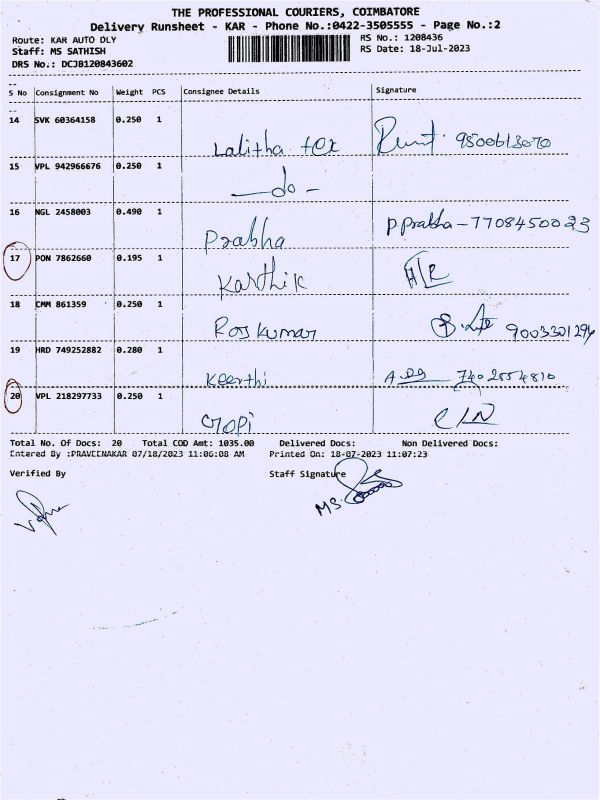 THE PROFESSIONAL COURIERS, COIMBATORE
Delivery Runsheet - KAR - Phone No.:0422-3505555 - Page No.:2
Route: KAR AUTO DLY
RS No.: 1208436
Staff: MS SATHISH
RS Date: 18-Jul-2023
DRS No.: DCJB120843602
S No Consignment No Weight PCS Consignee Details Signature
14 SVK 60364158 0.250 1
Lalitha tex 9500613070
15 VPL 942966676 0.250 1
-do-
16 NGL 2458003 0.490 1
Prabha P.Prabha-7708450023
17 PON 7862660 0.195 1
Karthik
18 CMM 861359 0.250 1
Raj Kumar 9003301294
19 HRD 749252882 0.280 1
Keerthi 7402554810
20 VPL 218297733 0.250 1
Gopi
Total No. Of Docs: 20 Total COD Amt: 1035.00 Delivered Docs: Non Delivered Docs:
Entered By :PRAVEENAKAR 07/18/2023 11:06:08 AM Printed On: 18-07-2023 11:07:23
Verified By Staff Signature
MS.